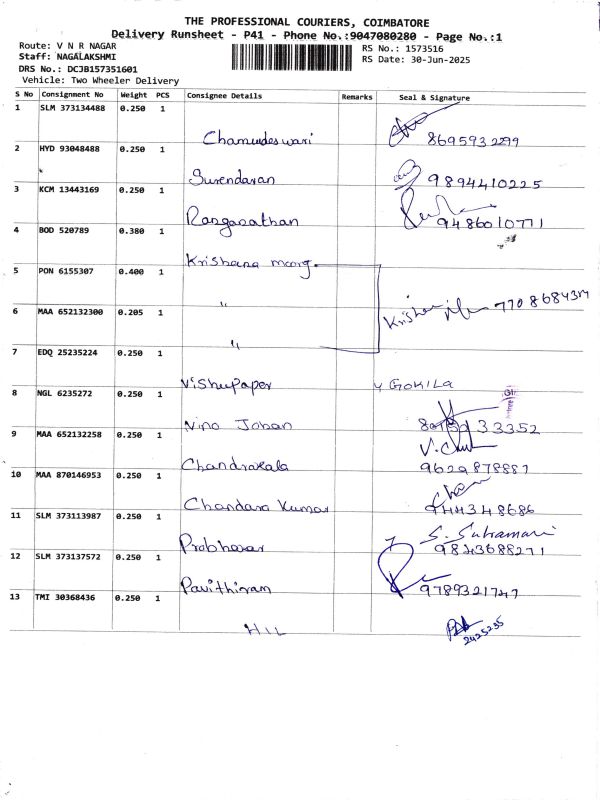 THE PROFESSIONAL COURIERS, COIMBATORE
Delivery Runsheet - P41 - Phone No.:9047080280 - Page No.:1
Route: V N R NAGAR
RS No.: 1573516
Staff: NAGALAKSHMI
RS Date: 30-Jun-2025
DRS No.: DCJB157351601
Vehicle: Two Wheeler Delivery
S No Consignment No Weight PCS Consignee Details Remarks Seal & Signature
1 SLM 373134488 0.250 1
Chamundeswari 8695932299
2 HYD 93048488 0.250 1
Surendaran 9894410225
3 KCM 13443169 0.250 1
Ranganathan 9486010771
4 BOD 520789 0.380 1
Krishana
5 PON 6155307 0.400 1
"
6 MAA 652132300 0.205 1
"
7 EDQ 25235224 0.250 1
Vishupaper GOKILA
8 NGL 6235272 0.250 1
Nino Joban 33352
9 MAA 652132258 0.250 1
Chandrakala 9629878887
10 MAA 870146953 0.250 1
Chandara Kumar 9444348686
11 SLM 373113987 0.250 1
Prabhavar 9843688271
12 SLM 373137572 0.250 1
Pavithiram 9789321747
13 TMI 30368436 0.250 1
HIL 2425235